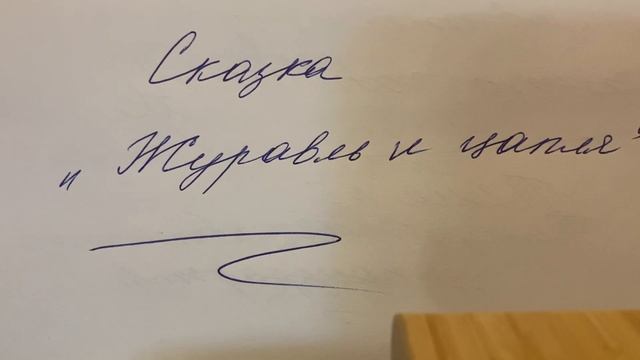 Сказка
„Журавль и цапля“